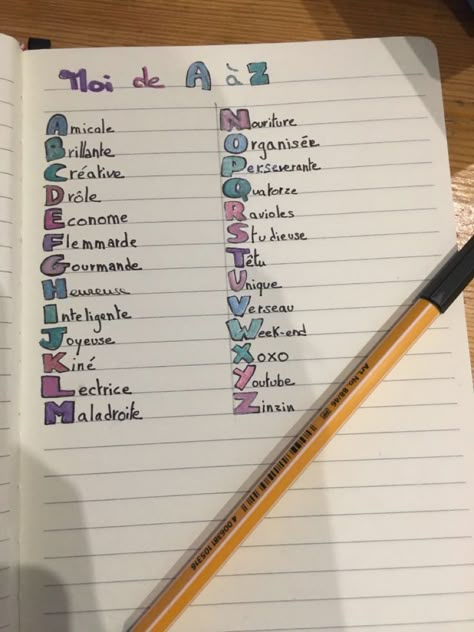 Moi de A à Z
Amicale
Brillante
Créative
Drôle
Econome
Flemmarde
Gourmande
Heureuse
Inteligente
Joyeuse
Kiné
Lectrice
Maladroite
Nouriture
Organisée
Perseverante
Quatorze
Ravioles
Studieuse
Têtu
Unique
Verseau
Week-end
Xoxo
Youtube
Zinzin
Art. No. 88/46
4 006381 105316